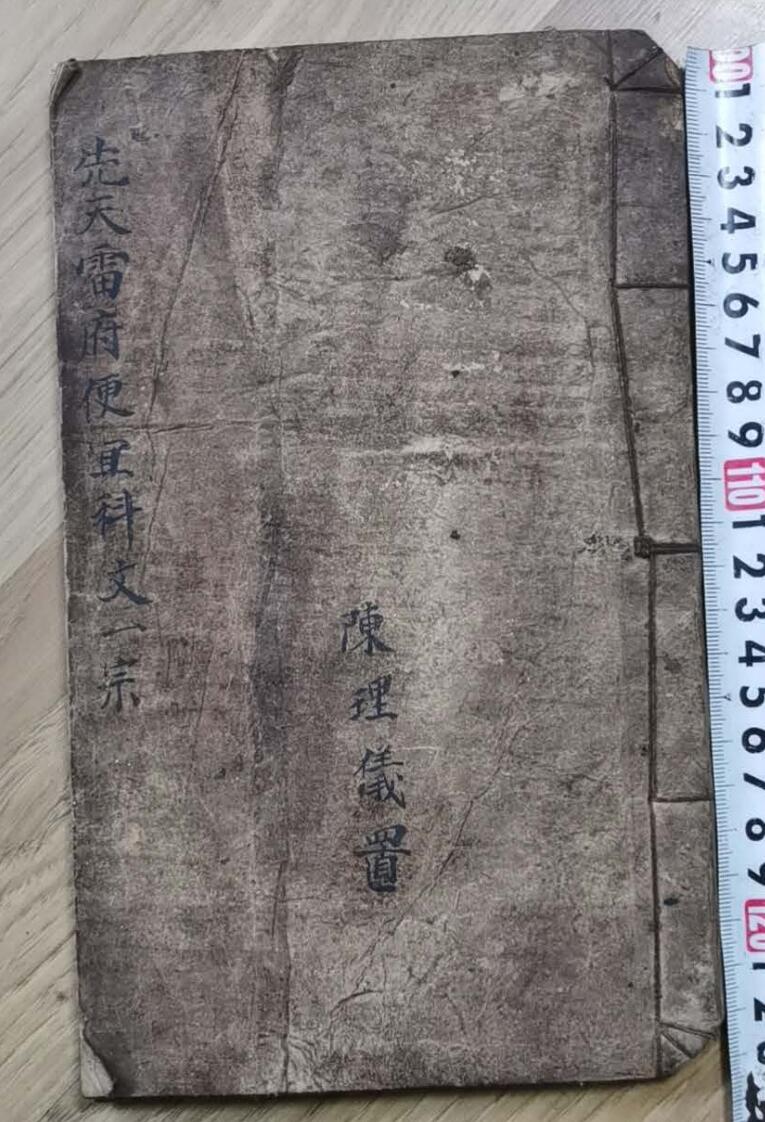 先天雷府便宜科文一宗
陳理儀置
1 2 3 4 5 6 7 8 9 110 1 2 3 4 5 6 7 8 9 120 1 2